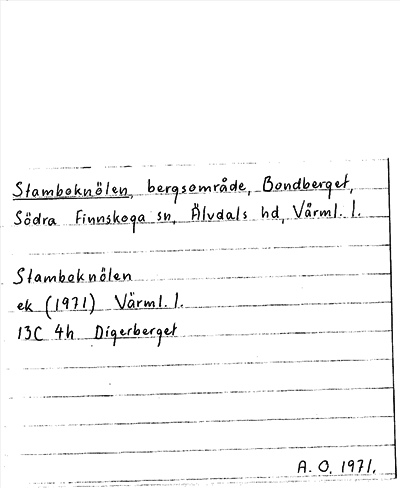 Stamboknölen, bergsområde, Bondberget,
Södra Finnskoga sn, Älvdals hd, Värml. l.
Stamboknölen
ek (1971) Värml. l.
13C 4h Digerberget
A. O. 1971.